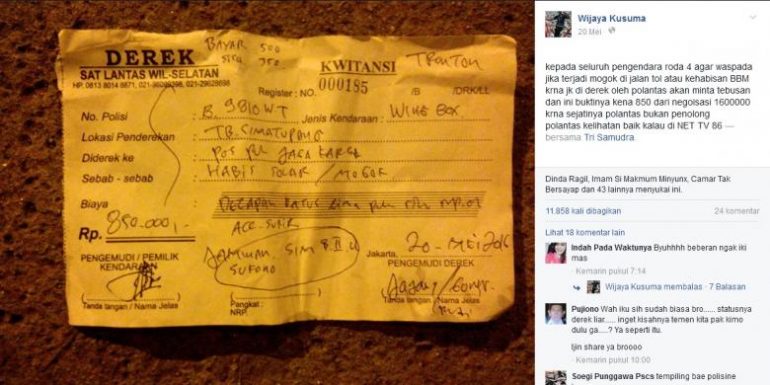 DEREK
SAT LANTAS WIL-SELATAN
BAYAR 500
SISA 350
KWITANSI
TRONTON
Register : NO. 000185 /B /DRK/LL
No. Polisi : B. 9810 WT Jenis Kendaraan : WING BOX
Lokasi Penderekan : TB. SIMATUPANG
Diderek ke : POS POL JAGA KARSA
Sebab - sebab : HABIS SOLAR / MOGOK
Biaya : DELAPAN RATUS LIMA
Rp. 850.000,-
ACC SUPIR
JAMINAN SIM B II U
SUTOMO
Jakarta, 20 - MEI 2016
PENGEMUDI / PEMILIK
KENDARAAN
PENGEMUDI DEREK
Tanda tangan / Nama Jelas
Pangkat :
NRP.
Tanda tangan / Nama Jelas
Wijaya Kusuma
20 Mei
kepada seluruh pengendara roda 4 agar waspada
jika terjadi mogok di jalan tol atau kehabisan BBM
krna jk di derek oleh polantas akan minta tebusan
dan ini buktinya kena 850 dari negoisasi 1600000
krna sejatinya polantas bukan penolong
polantas kelihatan baik kalau di NET TV 86 —
bersama Tri Samudra.
Dinda Ragil, Imam Si Makmum Minyunx, Camar Tak
Bersayap dan 43 lainnya menyukai ini.
11.858 kali dibagikan
24 komentar
Lihat 18 komentar lain
Indah Pada Waktunya Byuhhhh beberan ngak iki
mas
Kemarin pukul 7:14
Wijaya Kusuma membalas · 7 Balasan
Pujiono Wah iku sih sudah biasa bro..... statusnya
derek liar..... inget kisahnya temen kita pak kimo
dulu ga.....? Ya seperti itu.
Ijin share ya broooo
Kemarin pukul 10:00
Soegi Punggawa Pscs tempiling bae polisine